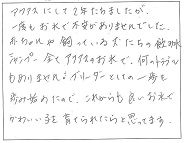 アクアスにして2年たちましたが、
一度もお水で不安がありませんでした。
赤ちゃんや飼っている犬たちの飲水
シャンプー全てアクアスのお水で、何のトラブル
もありません。ブリーダーとしての一歩を
歩み始めたので、これからも良いお水で
かわいい子を育てられたらと思ってます。